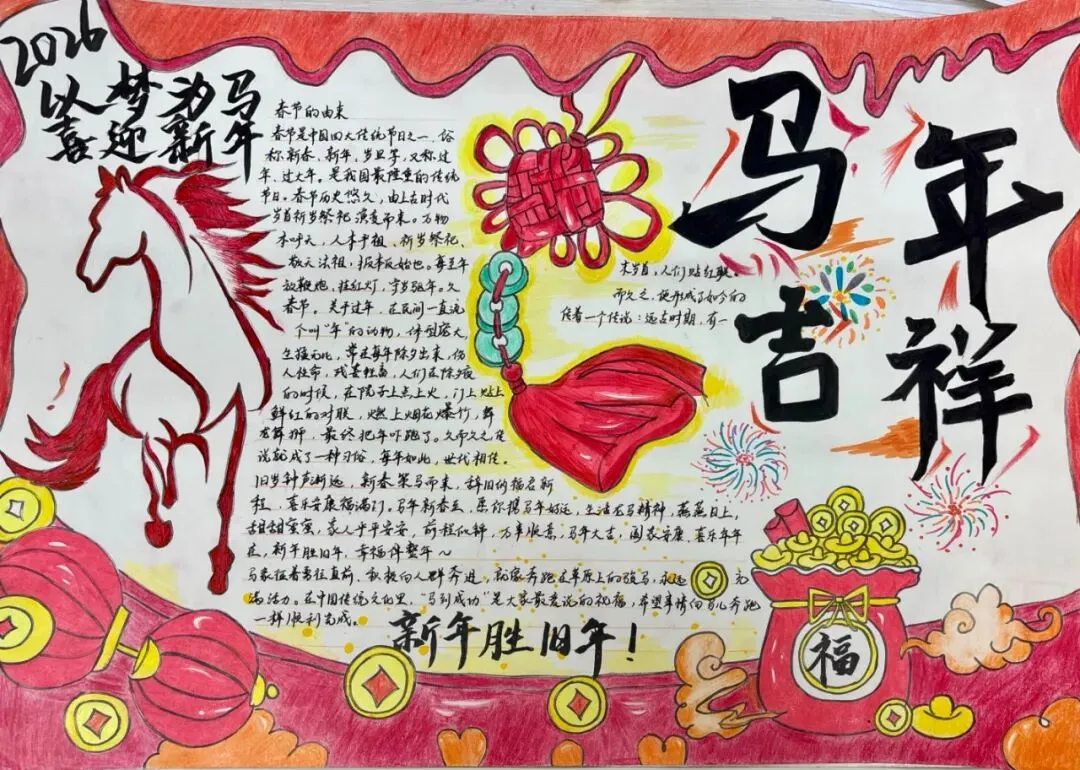 2026
以梦为马
喜迎新年
春节的由来
春节是中国四大传统节日之一，俗
称新春、新年、岁旦等，又称过
年、过大年。是我国最隆重的传统
节日。春节历史悠久，由上古时代
岁首祈岁祭祀演变而来。万物
本乎天，人本乎祖、祈岁祭祀、
敬天法祖，报本反始也。每至年
末岁首，人们贴红联。
放鞭炮，挂红灯，守岁
而久之，便形成了如今的
春节。关于过年，在民间一直流
传着一个传说：远古时期，有一
个叫“年”的动物，体型庞大，
生猛无比，常在每年除夕出来，伤
人性命，残害牲畜，人们在除夕夜
的时候，在院子上点上火，门上贴上
鲜红的对联，燃上烟花爆竹，舞
龙舞狮，最终把年吓跑了。久而久之，传
说就成了一种习俗，每年如此，世代相传。
旧岁钟声渐远，新春策马而来，辞旧纳福启新
程，喜乐安康福满门。马年新春至，愿你携马年好运，生活龙马精神，蒸蒸日上，
甜甜蜜蜜，家人平平安安，前程似锦，万事顺意，马年大吉，阖家安康、喜乐年年
在，新年胜旧年，幸福伴整年～
马象征着勇往直前、积极向人群奔进，就像奔跑在草原上的骏马，永远充
满活力。在中国传统文化里，“马到成功”是大家最爱说的祝福，希望事情向马儿奔跑
一样顺利完成。
新年胜旧年！
马年
吉祥
福